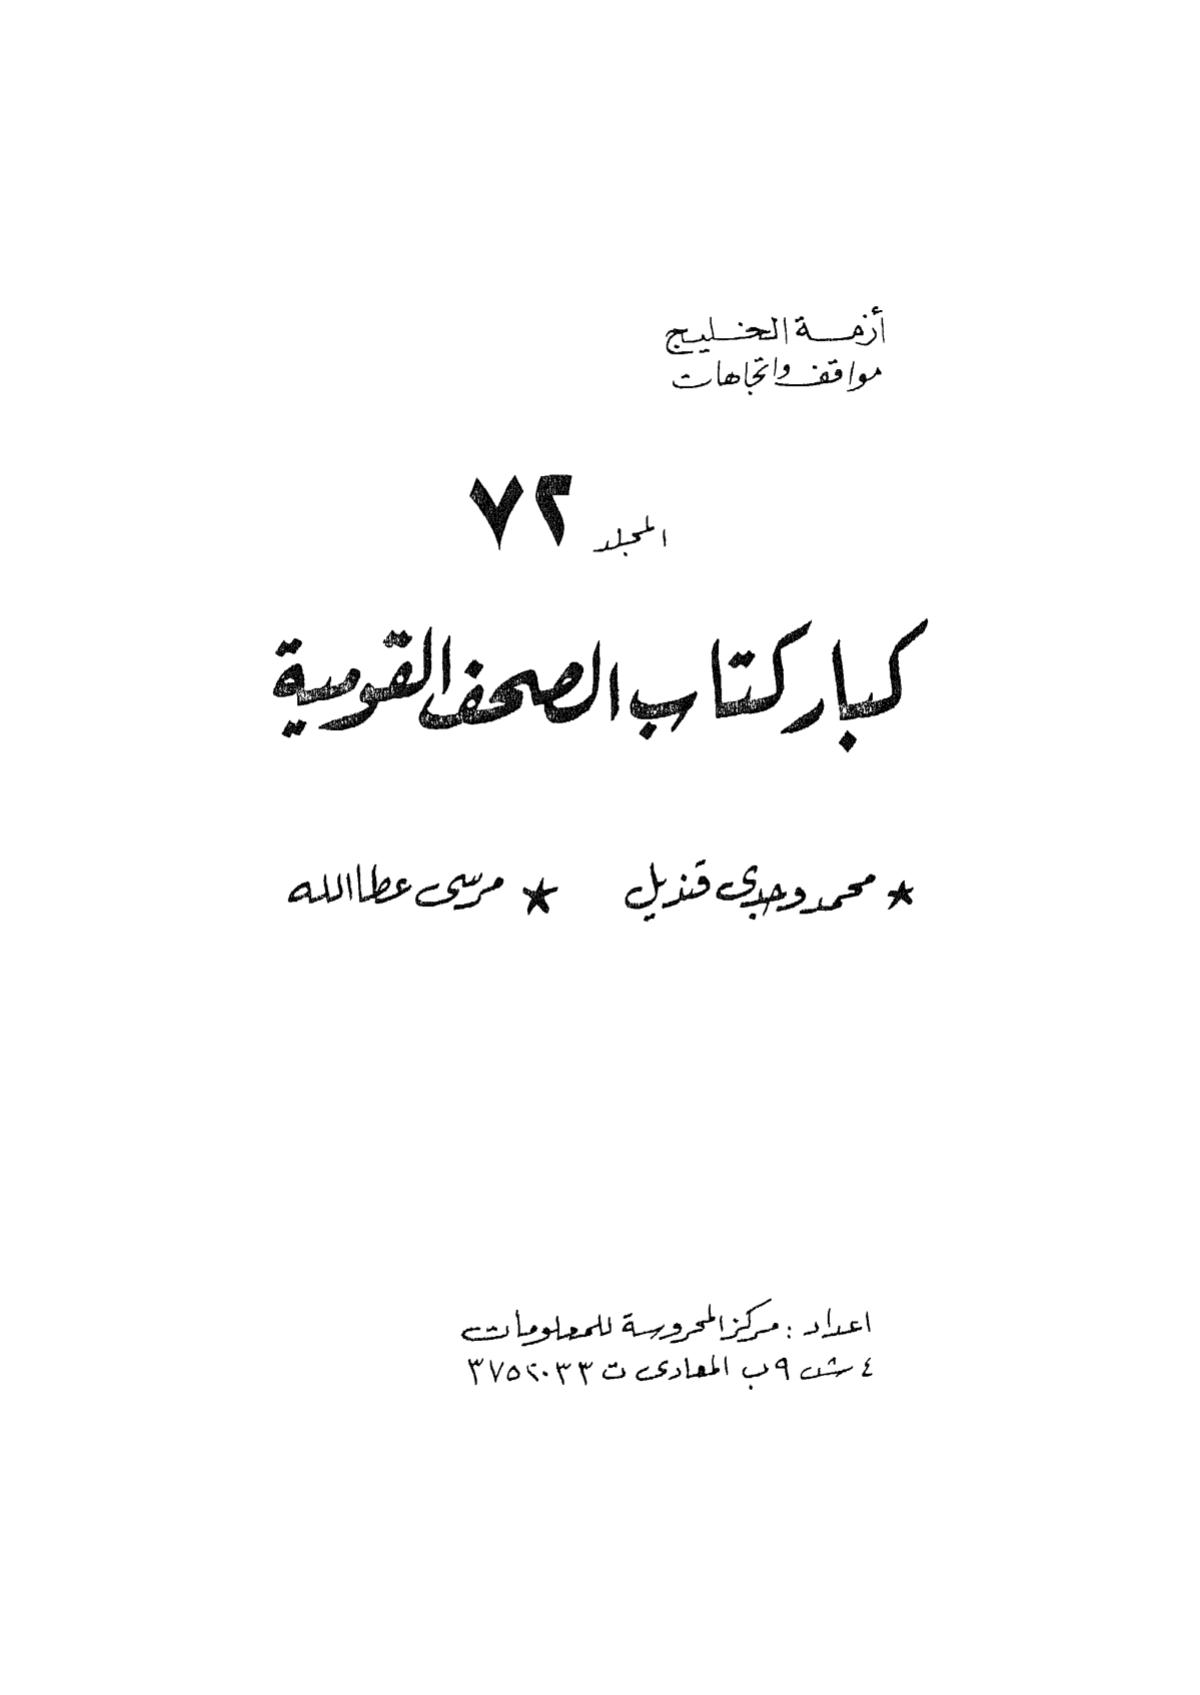 أزمة الخليج
مواقف واتجاهات
المجلد ٧٢
كبار كتاب الصحف القومية
★ محمد وجدي قنديل ★ مرسى عطا الله
اعداد : مركز المحروسة للمعلومات
٤ ش ٩ ب المعادى ت ٣٧٥٢٠٣٣